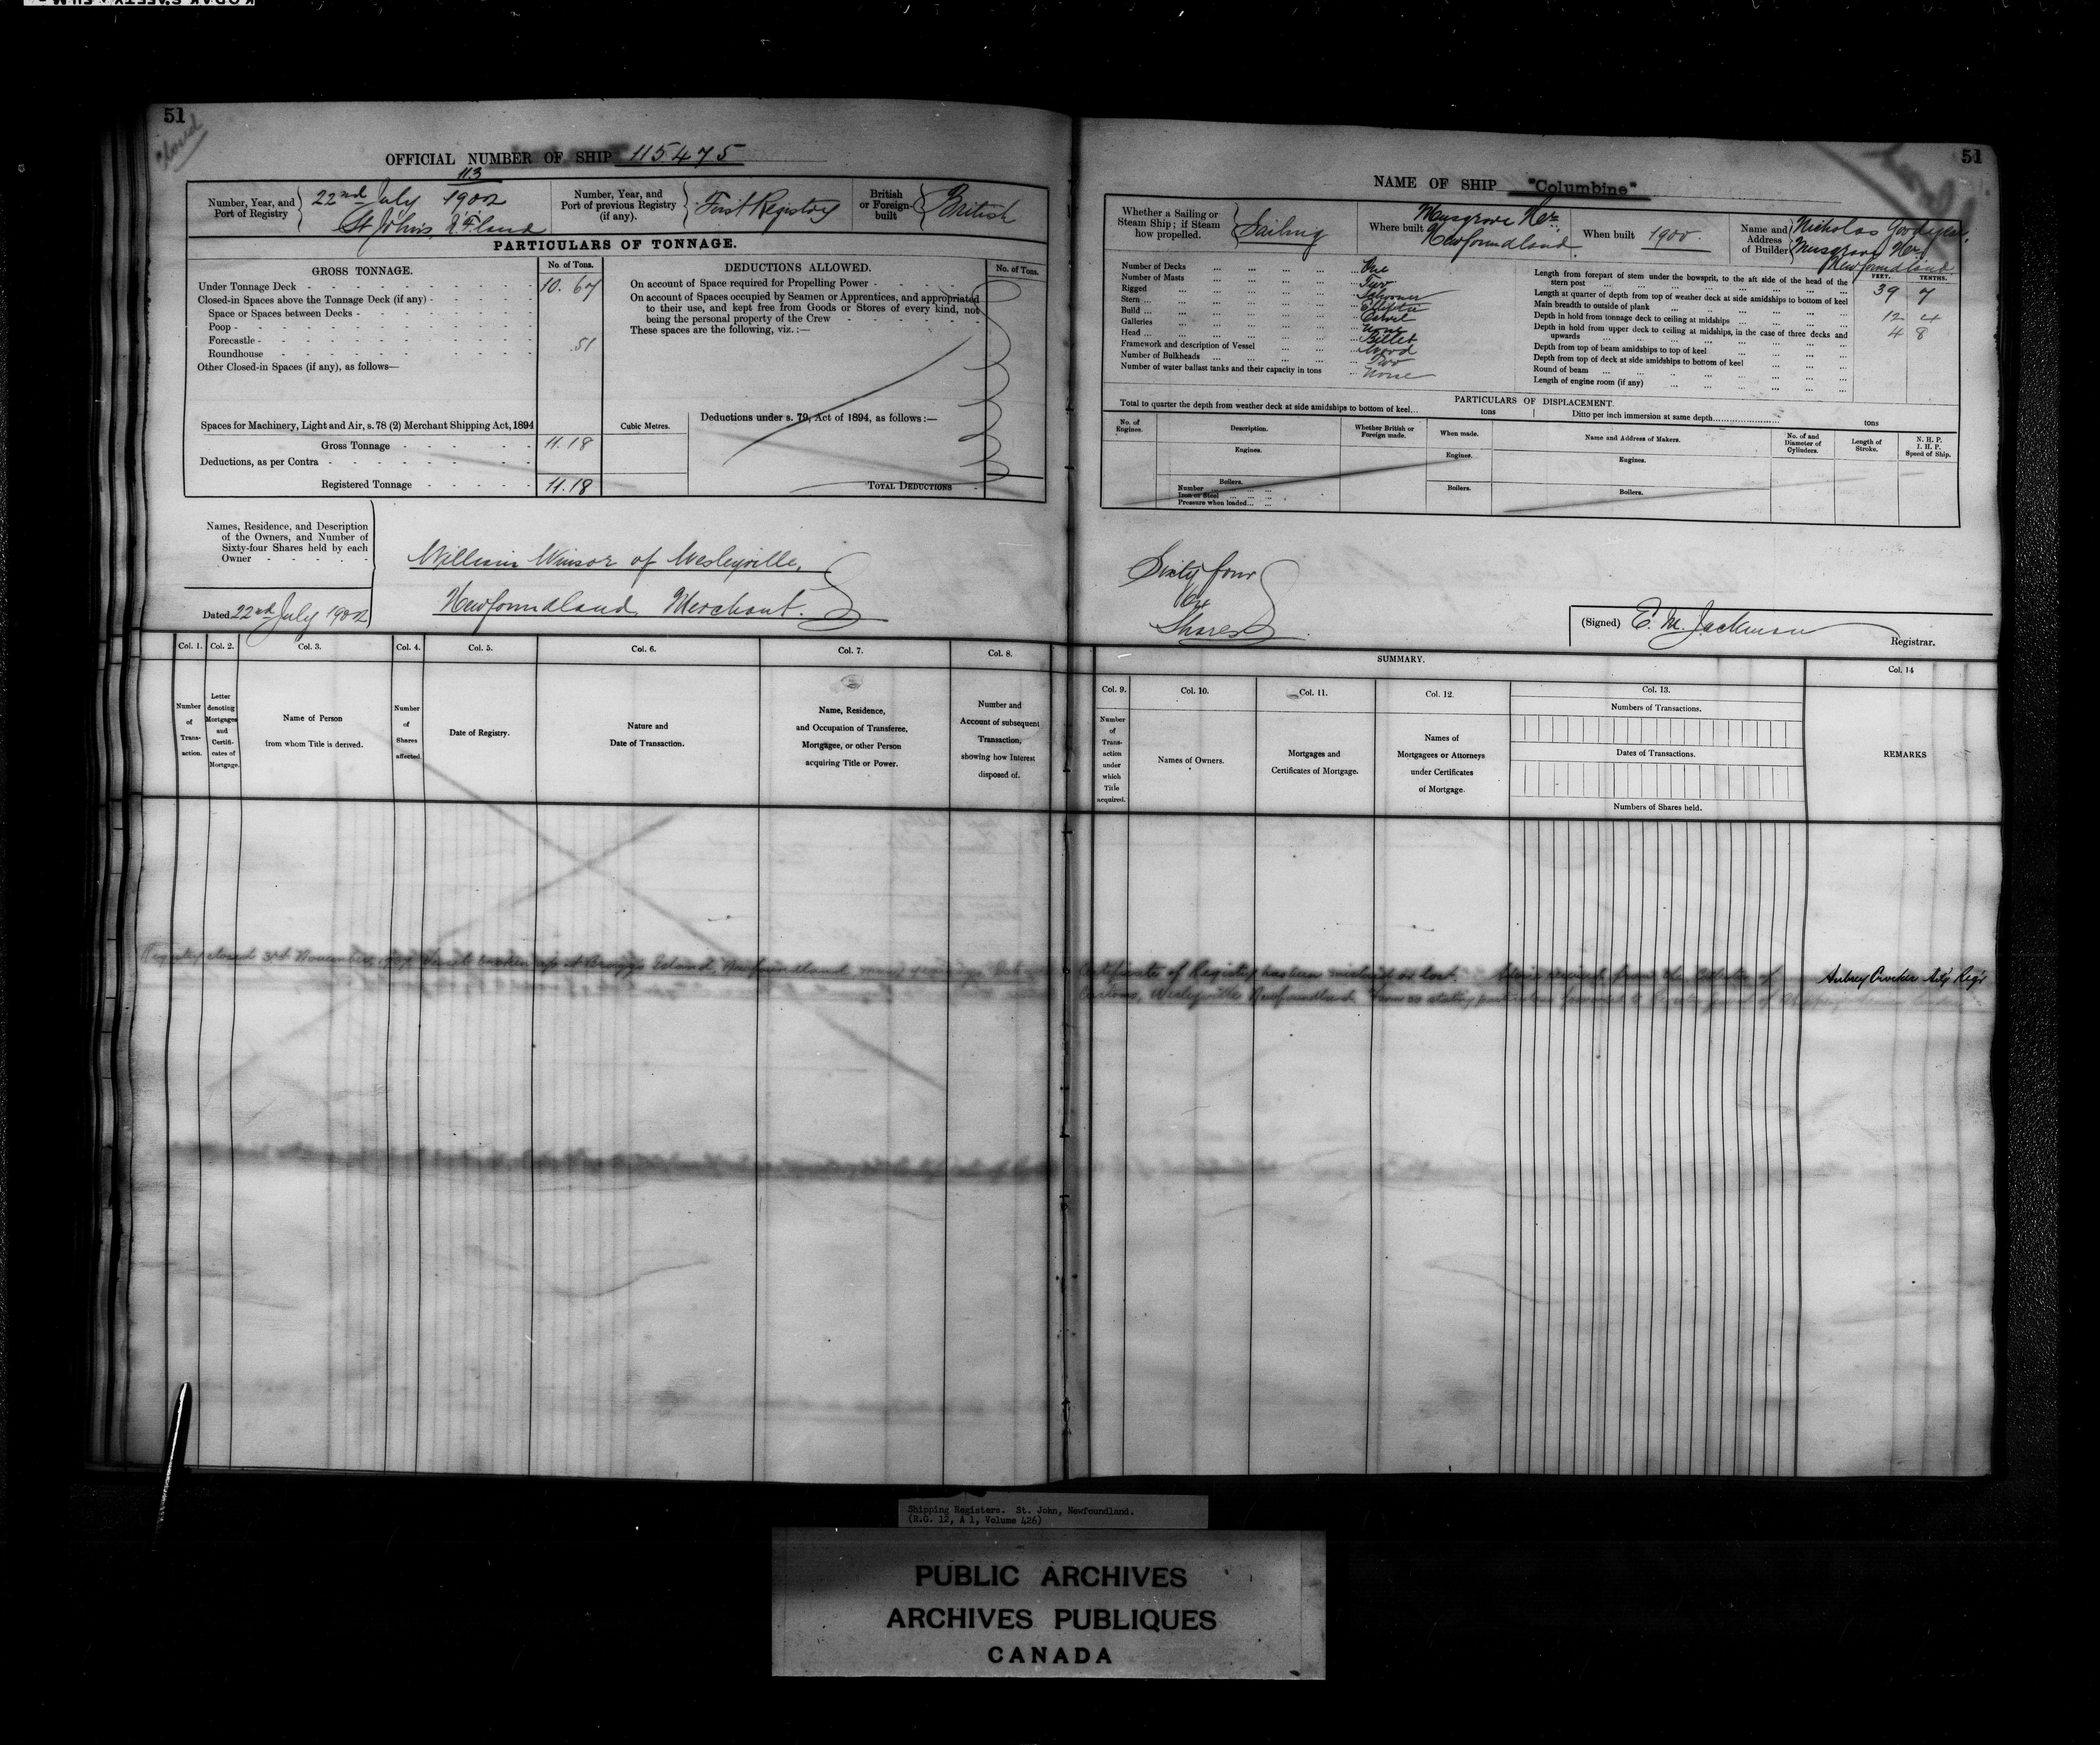 51
Closed
OFFICIAL NUMBER OF SHIP 115.475
Number, Year, and Port of Registry
113
22nd July 1902
St John's, N'F'land
Number, Year, and Port of previous Registry (if any).
First Registry
British or Foreign-built
British
PARTICULARS OF TONNAGE.
GROSS TONNAGE.
No. of Tons.
Under Tonnage Deck 10.67
Closed-in Spaces above the Tonnage Deck (if any)
Space or Spaces between Decks
Poop
Forecastle .51
Roundhouse
Other Closed-in Spaces (if any), as follows—
Spaces for Machinery, Light and Air, s. 78 (2) Merchant Shipping Act, 1894
Gross Tonnage 11.18
Deductions, as per Contra
Registered Tonnage 11.18
DEDUCTIONS ALLOWED.
No. of Tons.
On account of Space required for Propelling Power
On account of Spaces occupied by Seamen or Apprentices, and appropriated
to their use, and kept free from Goods or Stores of every kind, not
being the personal property of the Crew
These spaces are the following, viz. :—
Cubic Metres.
Deductions under s. 79, Act of 1894, as follows :—
TOTAL DEDUCTIONS
Names, Residence, and Description
of the Owners, and Number of
Sixty-four Shares held by each
Owner
Dated 22nd July 1902
William Winsor of Wesleyville,
Newfoundland, Merchant.
Col. 1. Col. 2. Col. 3. Col. 4. Col. 5. Col. 6. Col. 7. Col. 8.
Number of Trans-action.
Letter denoting Mortgages and Certifi-cates of Mortgage.
Name of Person from whom Title is derived.
Number of Shares affected.
Date of Registry.
Nature and Date of Transaction.
Name, Residence, and Occupation of Transferee, Mortgagee, or other Person acquiring Title or Power.
Number and Account of subsequent Transaction, showing how Interest disposed of.
51
NAME OF SHIP "Columbine"
Whether a Sailing or Steam Ship; if Steam how propelled.
Sailing
Where built
Musgrave Hr.
Newfoundland
When built 1900.
Name and Address of Builder
Nicholas Goodyear,
Musgrave Hr.
Newfoundland
Number of Decks One
Number of Masts Two
Rigged Schooner
Stern Elliptic
Build Carvel
Galleries None
Head Billet
Framework and description of Vessel Wood
Number of Bulkheads Two
Number of water ballast tanks and their capacity in tons None
FEET. TENTHS.
Length from forepart of stem under the bowsprit, to the aft side of the head of the
stern post 39 7
Length at quarter of depth from top of weather deck at side amidships to bottom of keel
Main breadth to outside of plank 12 4
Depth in hold from tonnage deck to ceiling at midships 4 8
Depth in hold from upper deck to ceiling at midships, in the case of three decks and
upwards
Depth from top of beam amidships to top of keel
Depth from top of deck at side amidships to bottom of keel
Round of beam
Length of engine room (if any)
PARTICULARS OF DISPLACEMENT.
Total to quarter the depth from weather deck at side amidships to bottom of keel... tons
Ditto per inch immersion at same depth tons
No. of Engines.
Description.
Whether British or Foreign made.
When made.
Name and Address of Makers.
No. of and Diameter of Cylinders.
Length of Stroke.
N. H. P.
I. H. P.
Speed of Ship.
Engines.
Engines.
Engines.
Boilers.
Number
Iron or Steel
Pressure when loaded
Boilers.
Boilers.
Sixty four
64
Shares
(Signed) E. M. Jackman
Registrar.
SUMMARY.
Col. 9. Col. 10. Col. 11. Col. 12. Col. 13. Col. 14
Number of Trans-action under which Title acquired.
Names of Owners.
Mortgages and Certificates of Mortgage.
Names of Mortgagees or Attorneys under Certificates of Mortgage.
Numbers of Transactions.
Dates of Transactions.
Numbers of Shares held.
REMARKS
Registry closed 3rd November, Vessel broken up at Island, Newfoundland many years ago.
Certificate of Registry has been mislaid or lost. Advice received from the Collector of
Customs, Wesleyville Newfoundland.
Aubrey Crocker Act'g Reg'r
Shipping Registers. St. John, Newfoundland.
(R.G. 12, A 1, Volume 426)
PUBLIC ARCHIVES
ARCHIVES PUBLIQUES
CANADA